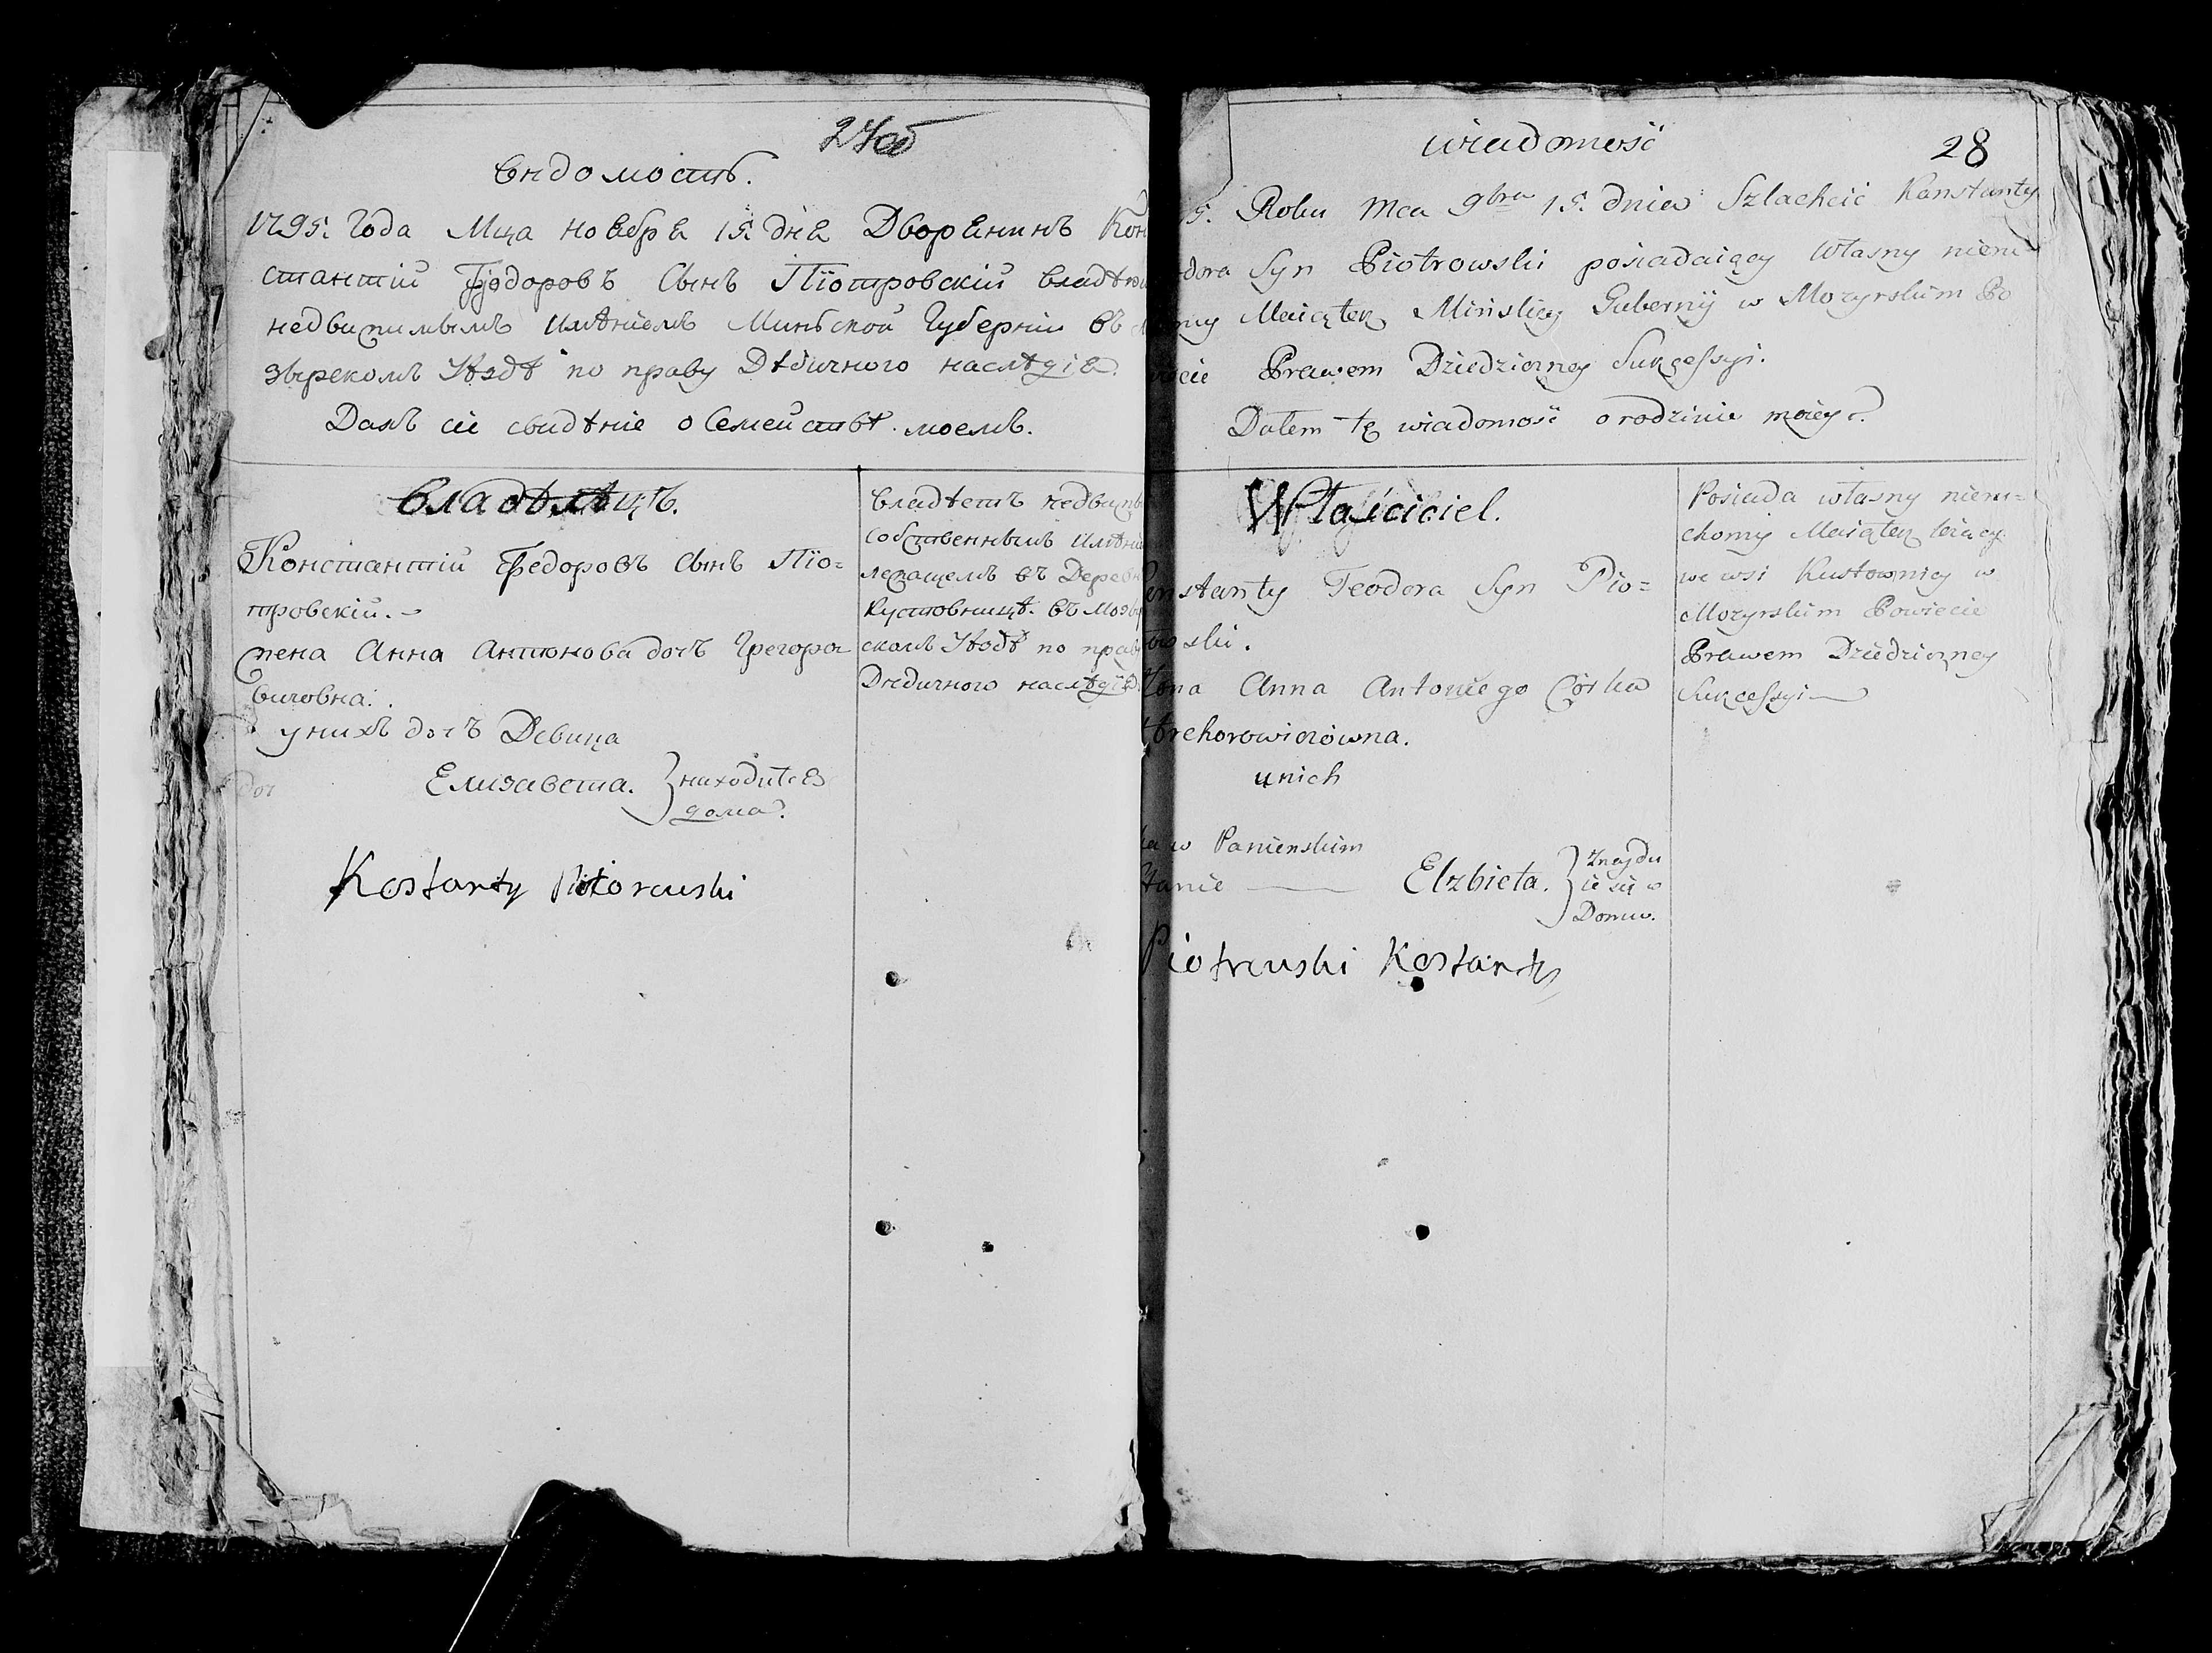 27об
Вѣдомость.
1795. Года Мца ноебря 15. дня Дворянинъ Кон
стантій Ѳедоровъ Сынъ Піотровскій владѣю
недвижимымъ имѣніемъ Минской Губерніи въ
зырскомъ Уѣздѣ по праву Дѣдичного наслѣдія.
Далъ сіе свидѣніе о Семействѣ моемъ.
Владѣлецъ.
Константій Федоровъ Сынъ Піо=
тровскій.
жена Анна Антонова дочъ Грегоро
вичовна.
у нихъ дочъ Девица
доч
Елизавета. } находится
дома
Kostanty Piotorewski
владѣетъ недвижи
собственнымъ имѣніе
лежащемъ въ Деревн
Кустовницѣ. въ Мозыр
скомъ Уѣздѣ по праву
Дѣдичного наслѣдія
wiadomość
28
5. Roku Mca 9bra 15. dnia Szlachcic Kanstanty
dora Syn Piotrowski posiadaiący Własny nieru=
my Maiątek Mińskiey Gubernij w Mozyrskim Po
wiecie Prawem Dziedziczney Sukcessyi.
Dałem tę wiadomość o rodzinie moiey
Właściciel.
nstanty Teodora Syn Pio=
owski.
Żona Anna Antoniego Córka
Hrehorowiczówna.
u nich
ka w Panienskim
Stanie — Elzbieta. } Znaydu
ie się w
Domu.
Piotrewski Kostanty
Posiada własny nieru=
chomy Maiątek leżący
we wsi Kustownicy w
Mozyrskim Powiecie
Prawem Dziedziczney
Sukcessyi